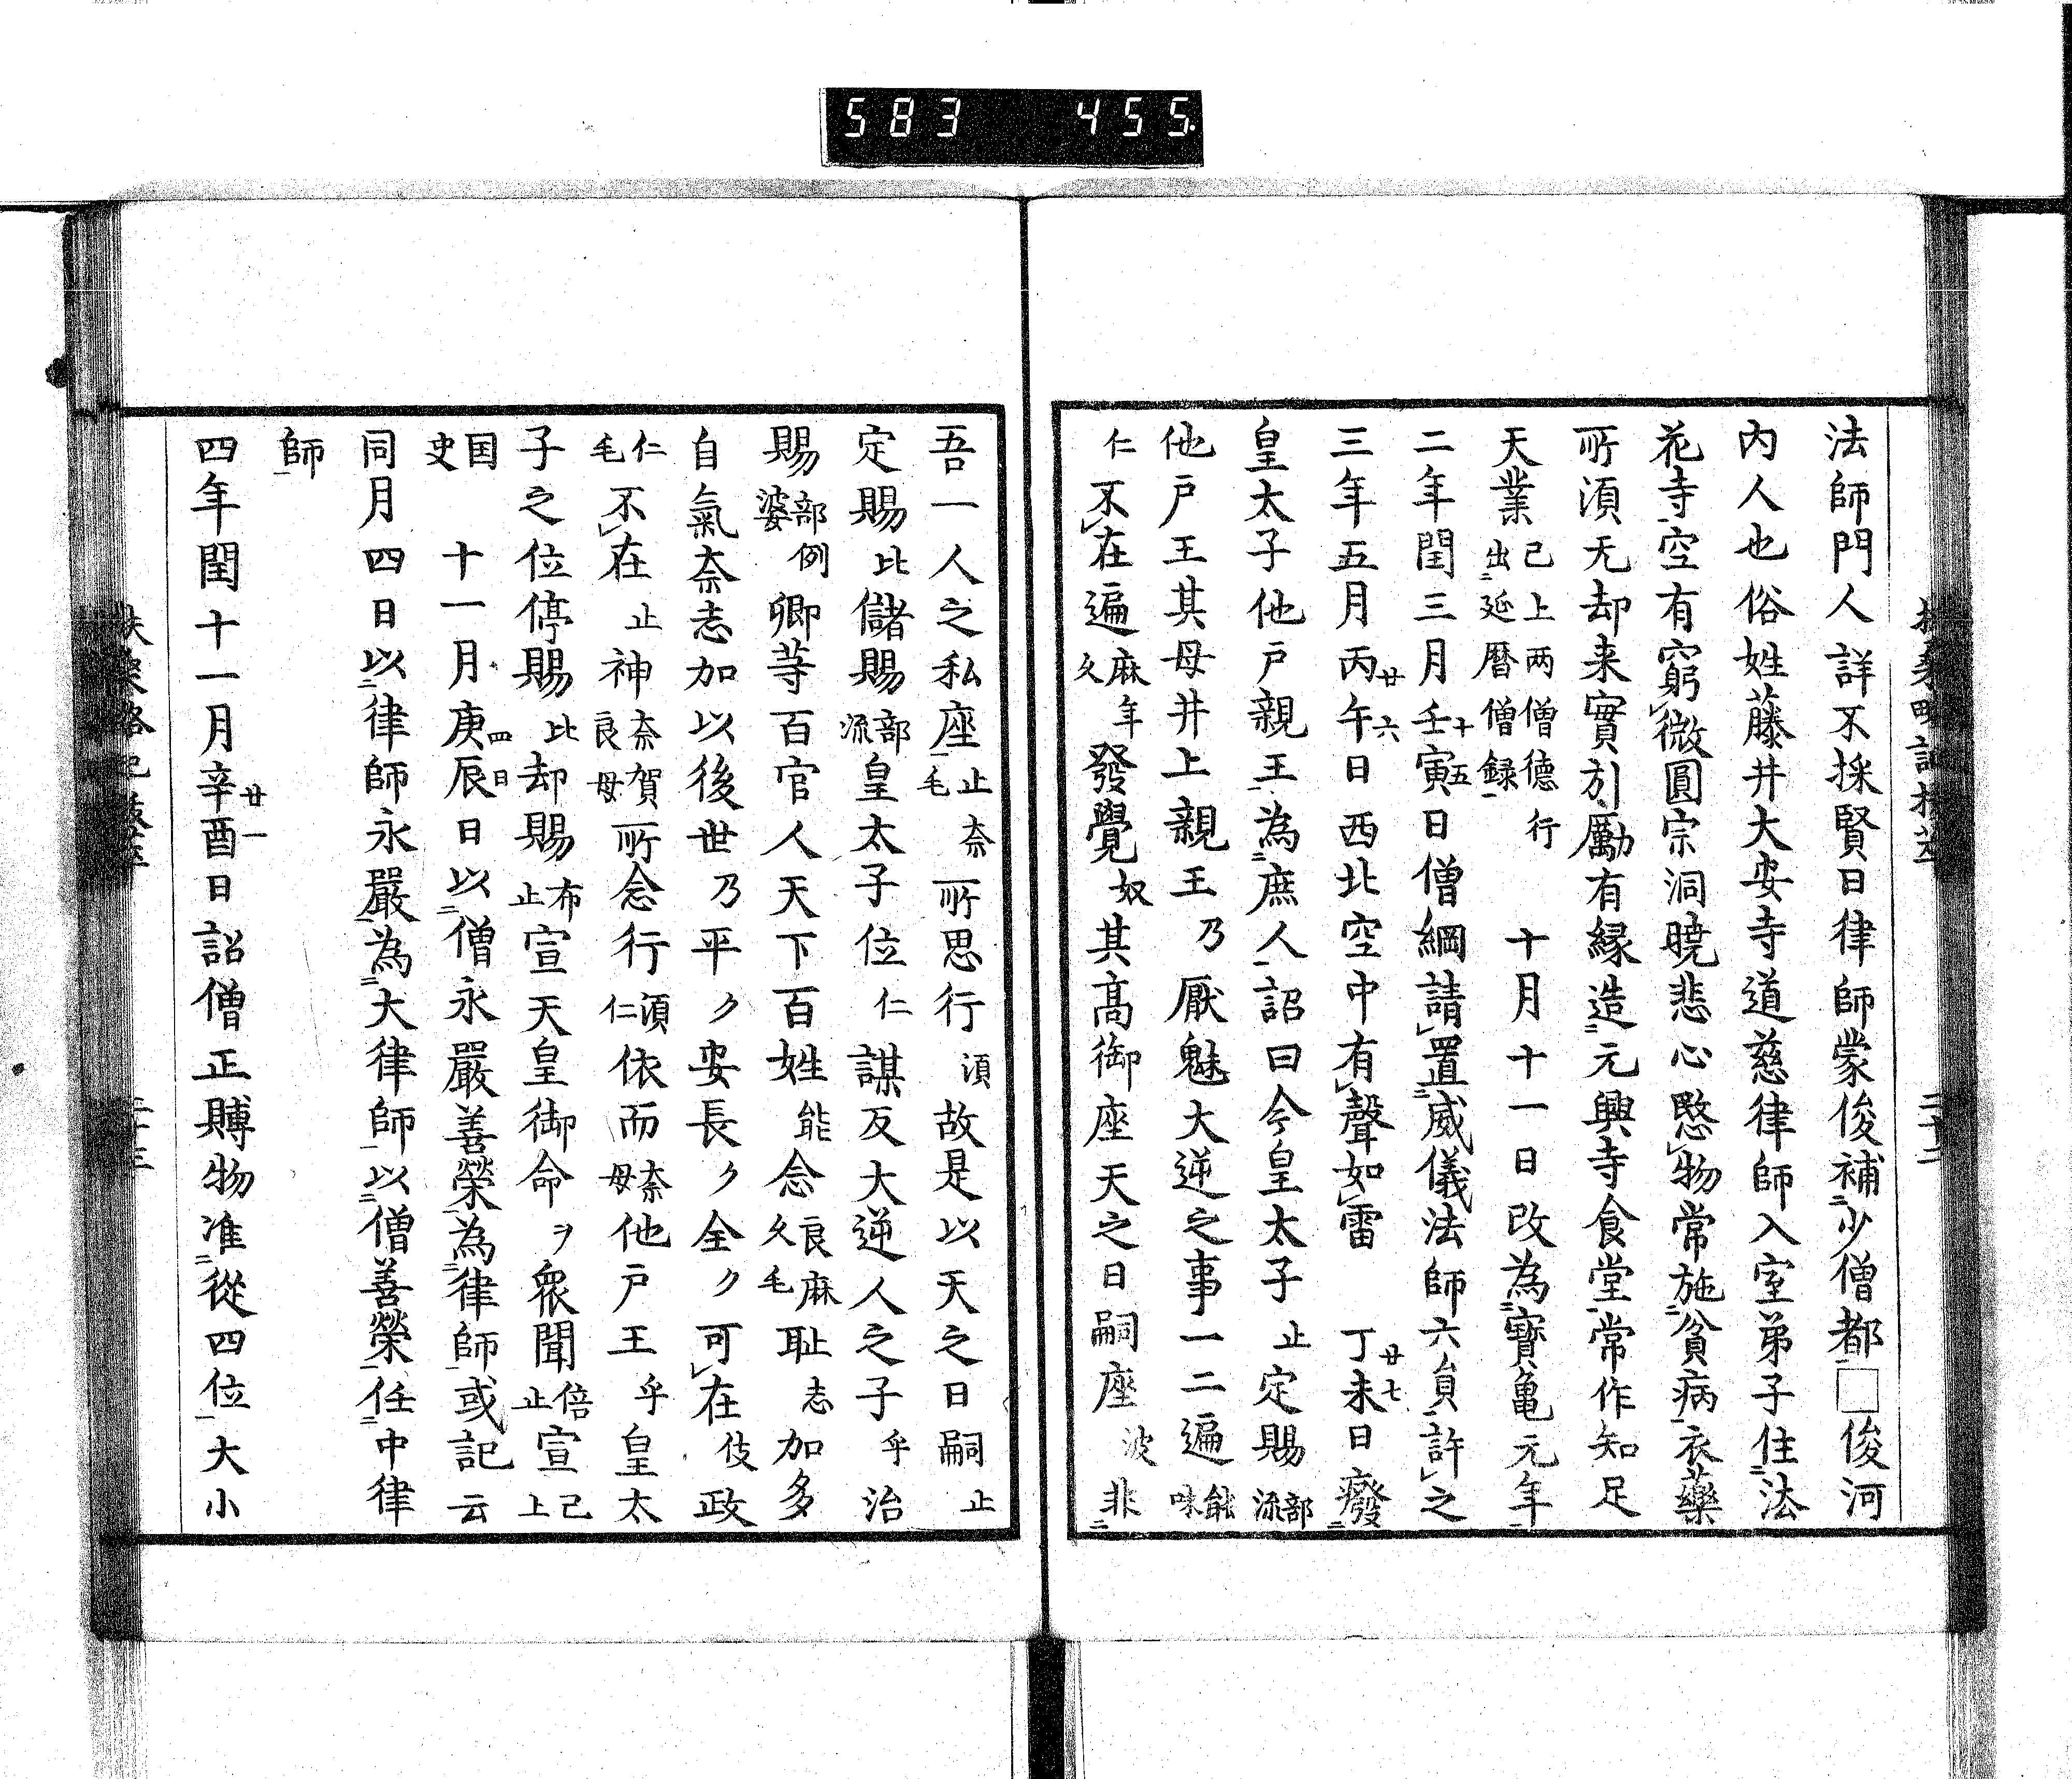 583 455.
法師門人詳不採賢日律師蒙俊補少僧都□俊河
内人也俗姓藤井大安寺道慈律師入室弟子住法
花寺空有窮微圓宗洞曉悲心愍物常施貧病衣藥
所須无却来實引勵有緣造元興寺食堂常作知足
天業己上両僧德行出延暦僧録 十月十一日改為寶亀元年
二年閏三月壬寅十五日僧綱請置威儀法師六負許之
三年五月丙午廿六日西北空中有聲如雷 丁未廿七日癈
皇太子他戸親王為庶人詔曰今皇太子止定賜部流
他戸王其母井上親王乃厭魅大逆之事一二遍能味
仁不在遍麻年久發覺奴其高御座天之日嗣座波非
吾一人之私座止毛奈所思行須故是以天之日嗣止
定賜比儲賜部流皇太子位仁謀反大逆人之子乎治
賜部婆例卿等百官人天下百姓能念良麻久毛耻志加多
自氣奈志加以後世乃平久安長久全久可在伎政
仁毛不在止神奈賀良母所念行須仁依而奈母他戸王乎皇太
子之位停賜比却賜布止宣天皇御命ヲ衆聞倍止宣己上
国史 十一月庚辰四日日以僧永嚴善榮為律師或記云
同月四日以律師永嚴為大律師以僧善榮任中律
師
四年閏十一月辛酉廿一日詔僧正賻物准從四位大小